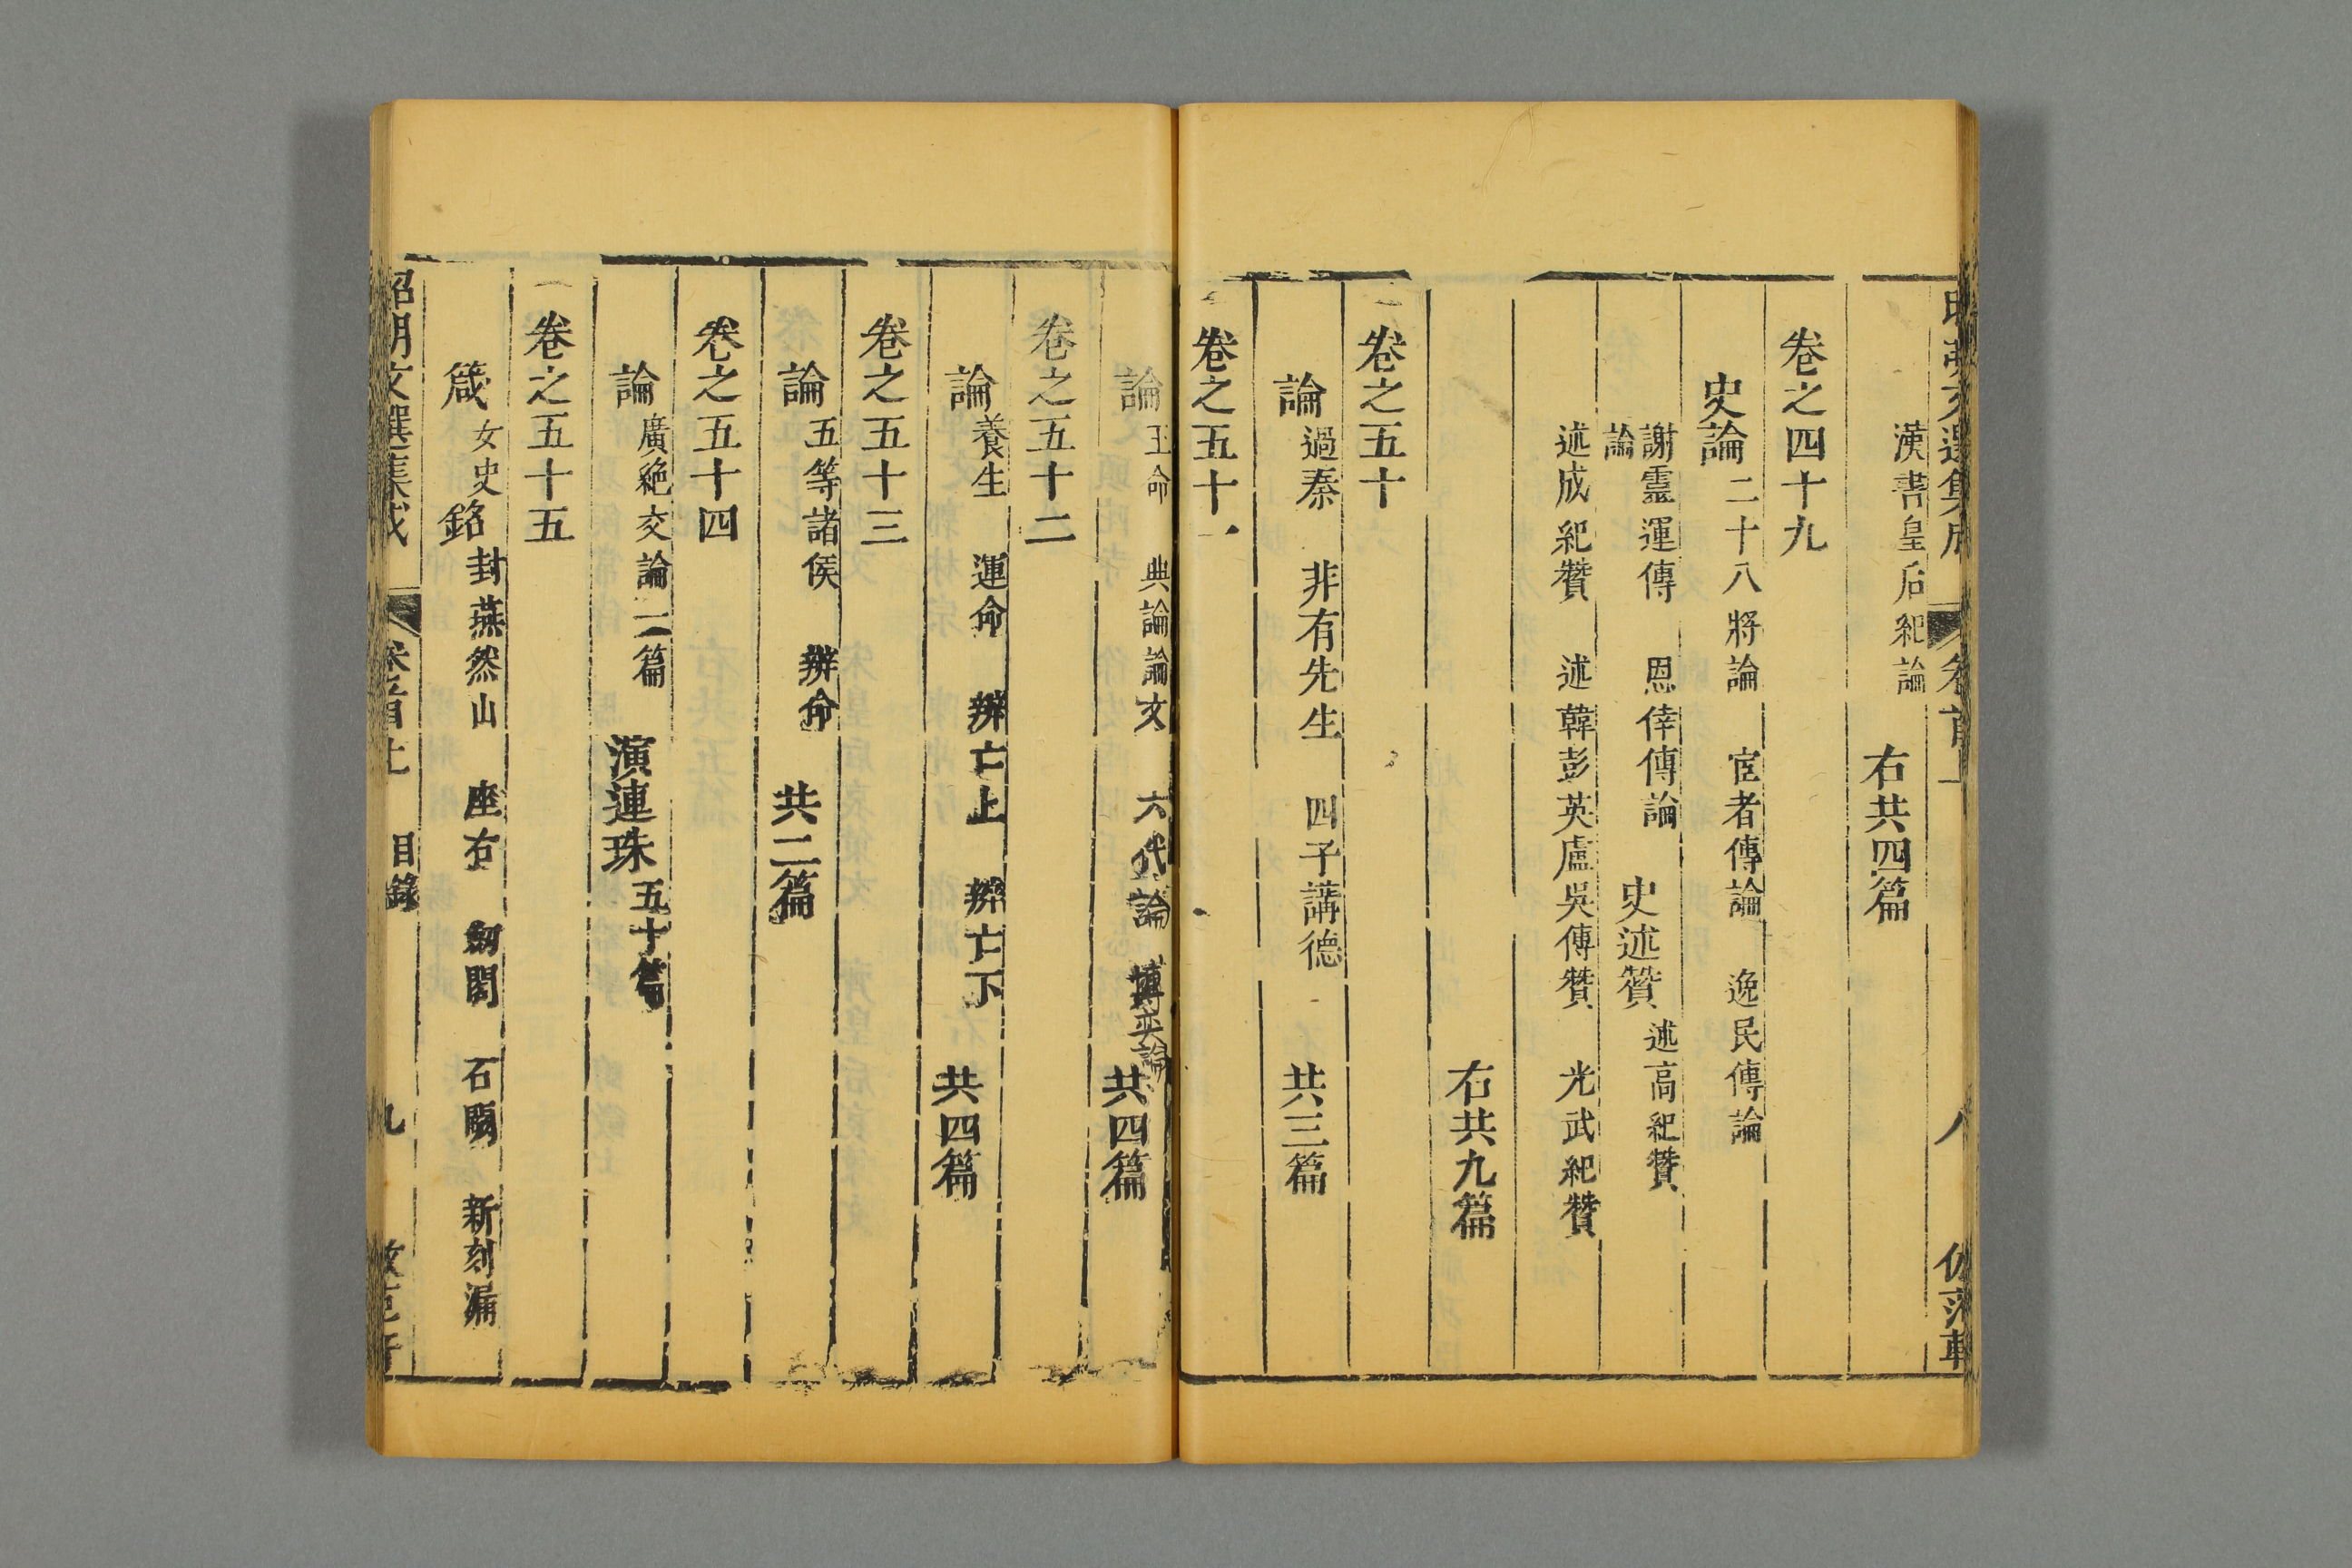 漢書皇后紀論
右共四篇
卷之四十九
史論 二十八將論 宦者傳論 逸民傳論
謝靈運傳論 恩倖傳論 史述贊 述高紀贊
述成紀贊 述韓彭英盧吳傳贊 光武紀贊
右共九篇
卷之五十
論 過秦 非有先生 四子講德 共三篇
卷之五十一
論 王命 典論論文 六代論 博奕論 共四篇
卷之五十二
論 養生 運命 辨亡上 辨亡下 共四篇
卷之五十三
論 五等諸侯 辨命 共二篇
卷之五十四
論 廣絶交論二篇 演連珠 五十篇
卷之五十五
箴 女史 銘 封燕然山 座右 劒閣 石闕 新刻漏
昭明文選集成 卷首上 目錄 九